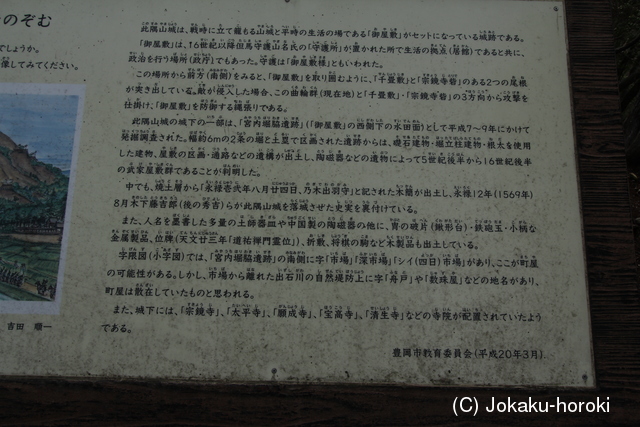 のぞむ
でしょうか。
像してみてください。
吉田 順一
此隅山城は、戦時に立て籠もる山城と平時の生活の場である「御屋敷」がセットになっている城跡である。
「御屋敷」は、16世紀以降但馬守護山名氏の「守護所」が置かれた所で生活の拠点(居館)であると共に、
政治を行う場所(政庁)でもあった。守護は「御屋敷様」ともいわれた。
この場所から前方(南側)をみると、「御屋敷」を取り囲むように、「千畳敷」と「宗鏡寺砦」のある2つの尾根
が突き出している。敵が侵入した場合、この曲輪群(現在地)と「千畳敷」・「宗鏡寺砦」の3方向から攻撃を
仕掛け、「御屋敷」を防御する縄張りである。
此隅山城の城下の一部は、「宮内堀脇遺跡」(「御屋敷」の西側下の水田面)として平成7〜9年にかけて
発掘調査された。幅約6mの2条の堀と土塁で区画された遺跡からは、礎石建物・堀立柱建物・根太を使用
した建物、屋敷の区画・通路などの遺構が出土し、陶磁器などの遺物によって5世紀後半から16世紀後半
の武家屋敷群であることが判明した。
中でも、焼土層から「永禄壱弐年八月廿四日、乃木出羽守」と記された木簡が出土し、永禄12年(1569年)
8月木下藤吉郎(後の秀吉)らが此隅山城を落城させた史実を裏付けている。
また、人名を墨書した多量の土師器皿や中国製の陶磁器の他に、冑の破片(鍬形台)・鉄砲玉・小柄な
金属製品、位牌(天文廿三年「道祐禅門霊位」)、折敷、将棋の駒など木製品も出土している。
字限図(小字図)では、「宮内堀脇遺跡」の南側に字「市場」「深市場」「シイ(四日)市場」があり、ここが町屋
の可能性がある。しかし、市場から離れた出石川の自然堤防上に字「舟戸」や「数珠屋」などの地名があり、
町屋は散在していたものと思われる。
また、城下には、「宗鏡寺」、「太平寺」、「願成寺」、「宝高寺」、「清生寺」などの寺院が配置されていたよう
である。
豊岡市教育委員会(平成20年3月)
(C) Jokaku-horoki